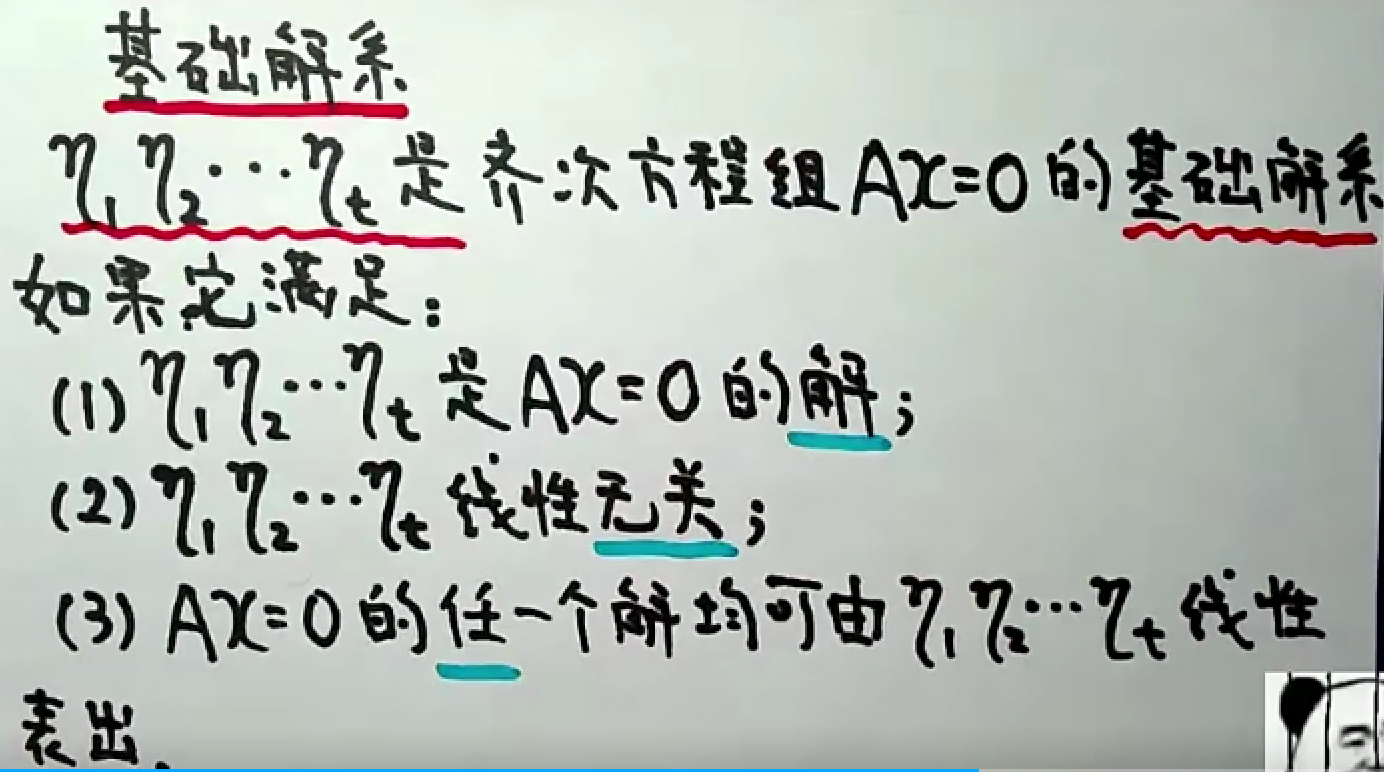 基础解系
η₁ η₂ ··· ηₜ 是齐次方程组 Ax=0 的基础解系
如果它满足：
(1) η₁ η₂ ··· ηₜ 是 Ax=0 的解；
(2) η₁ η₂ ··· ηₜ 线性无关；
(3) Ax=0 的任一个解均可由 η₁ η₂ ··· ηₜ 线性
表出.